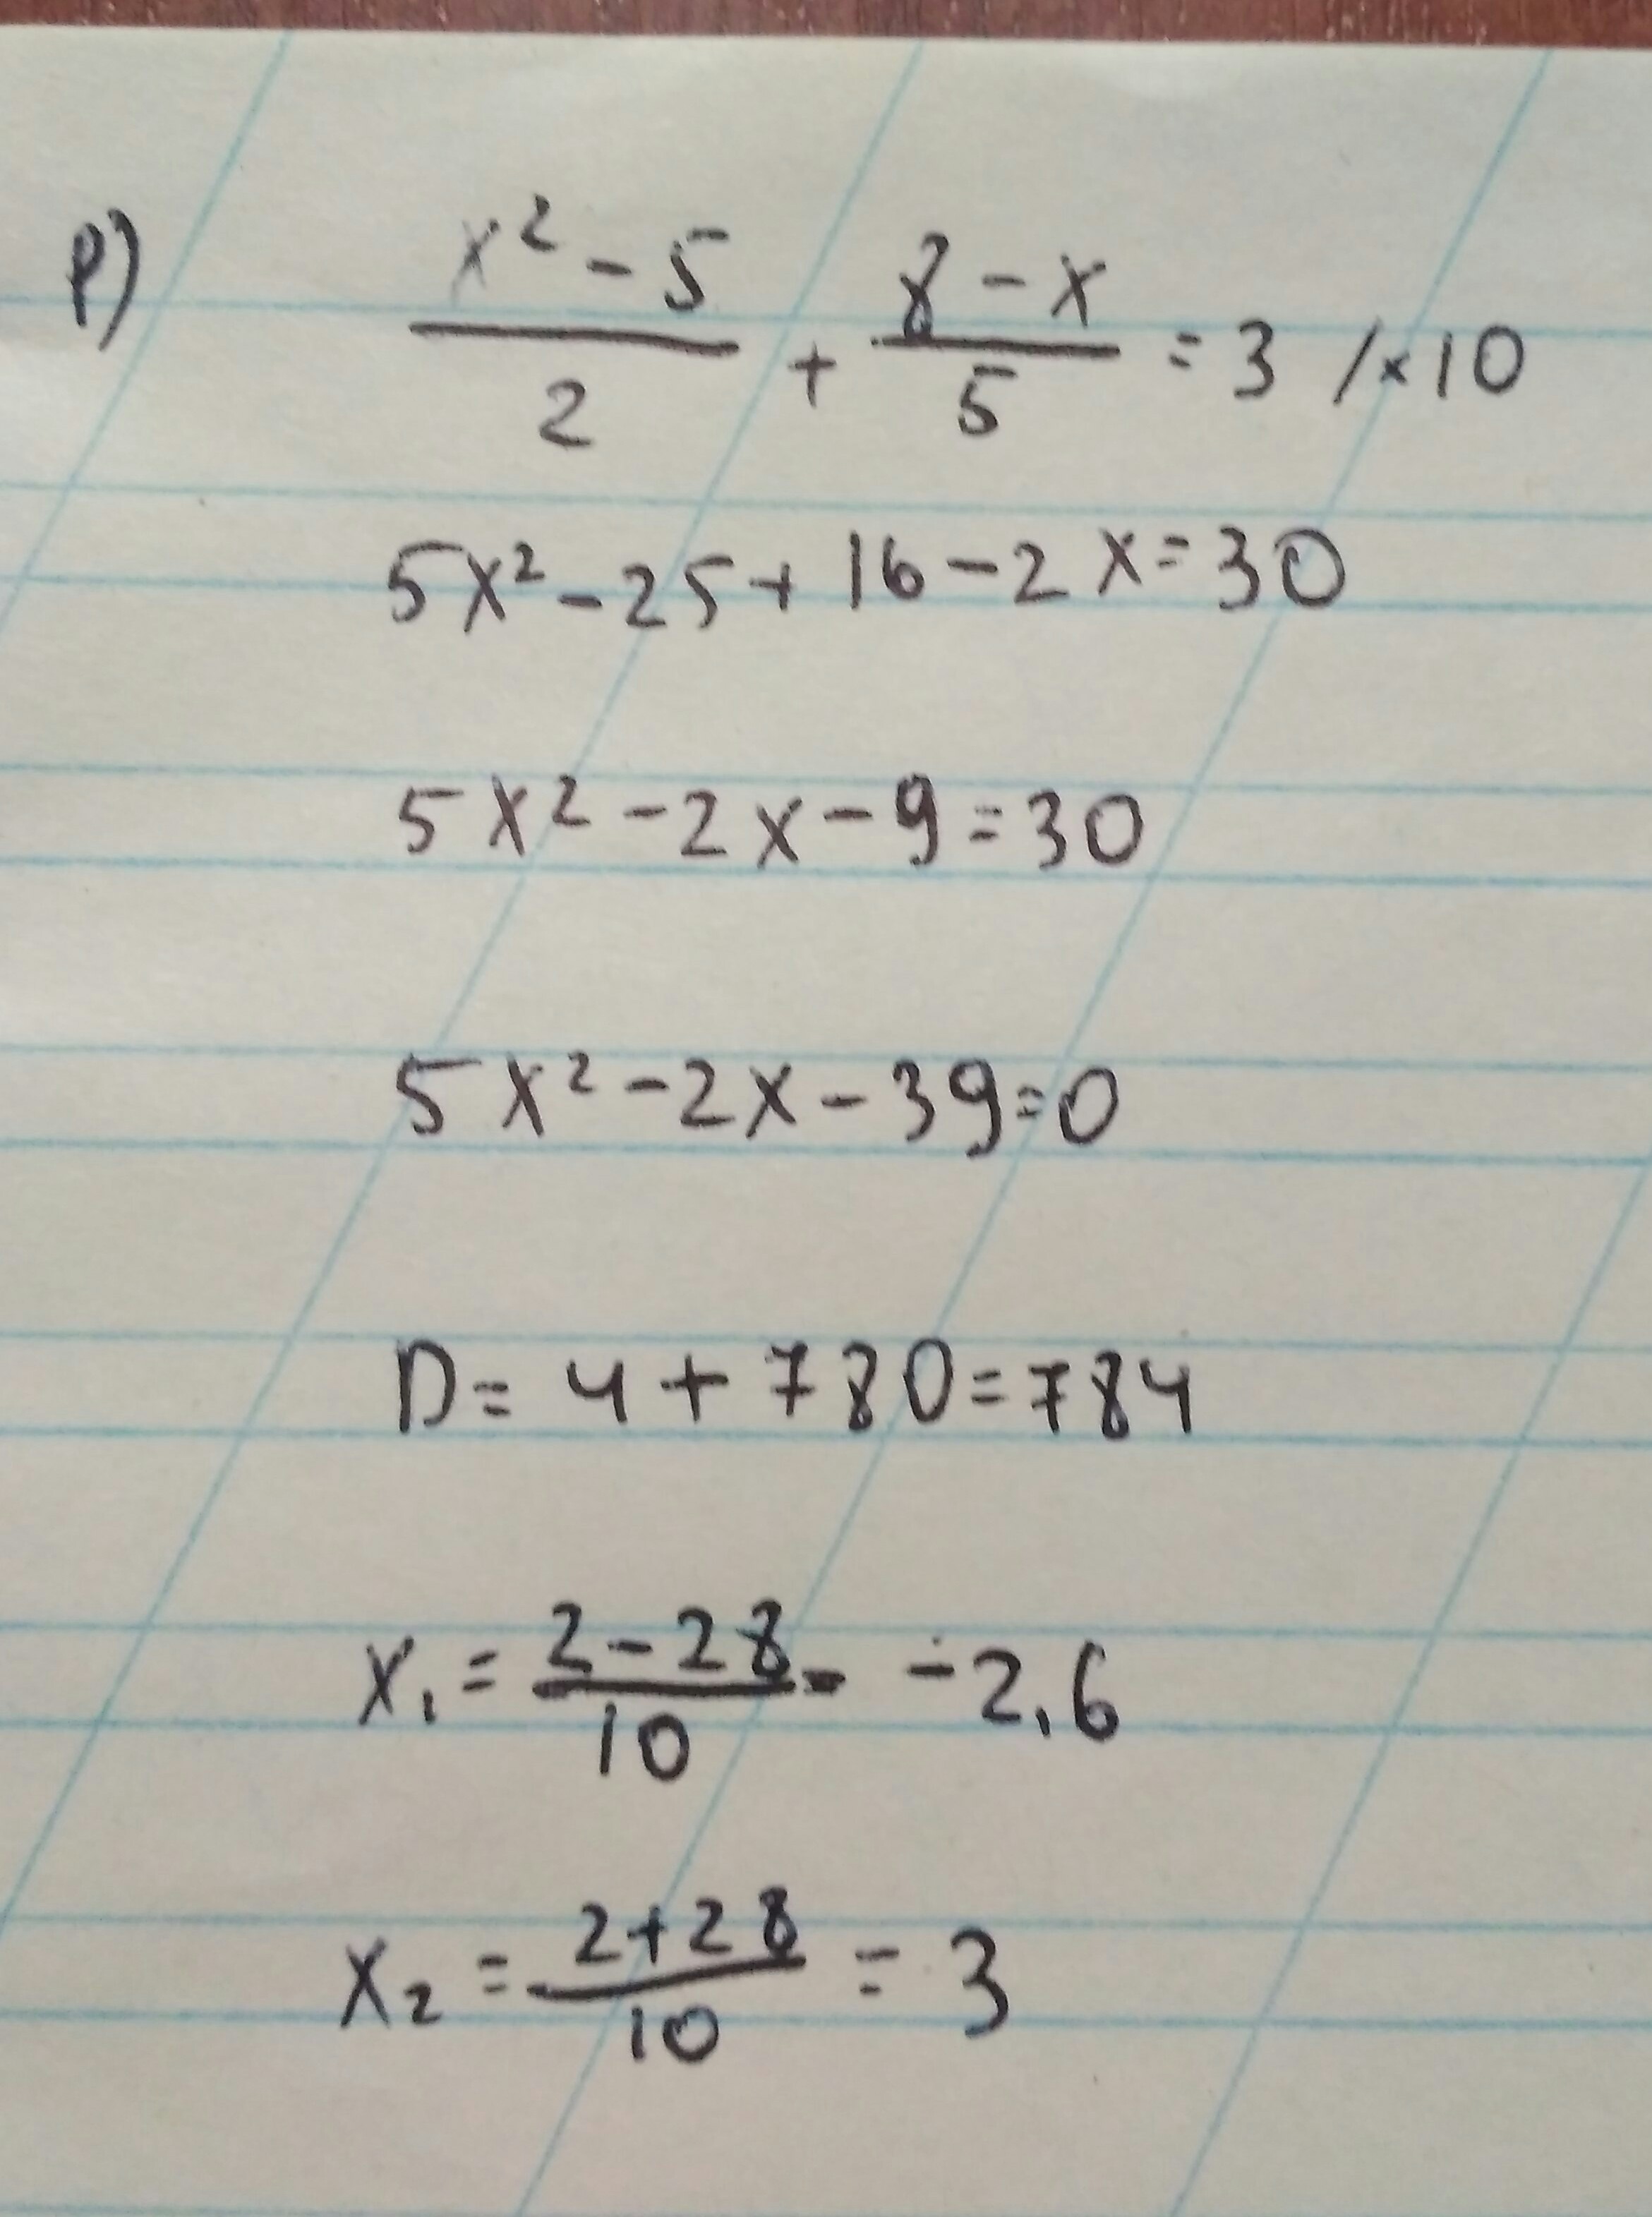 р) (x² - 5)/2 + (8 - x)/5 = 3 /×10
5x² - 25 + 16 - 2x = 30
5x² - 2x - 9 = 30
5x² - 2x - 39 = 0
D = 4 + 780 = 784
x₁ = (2 - 28)/10 - -2,6
x₂ = (2 + 28)/10 = 3